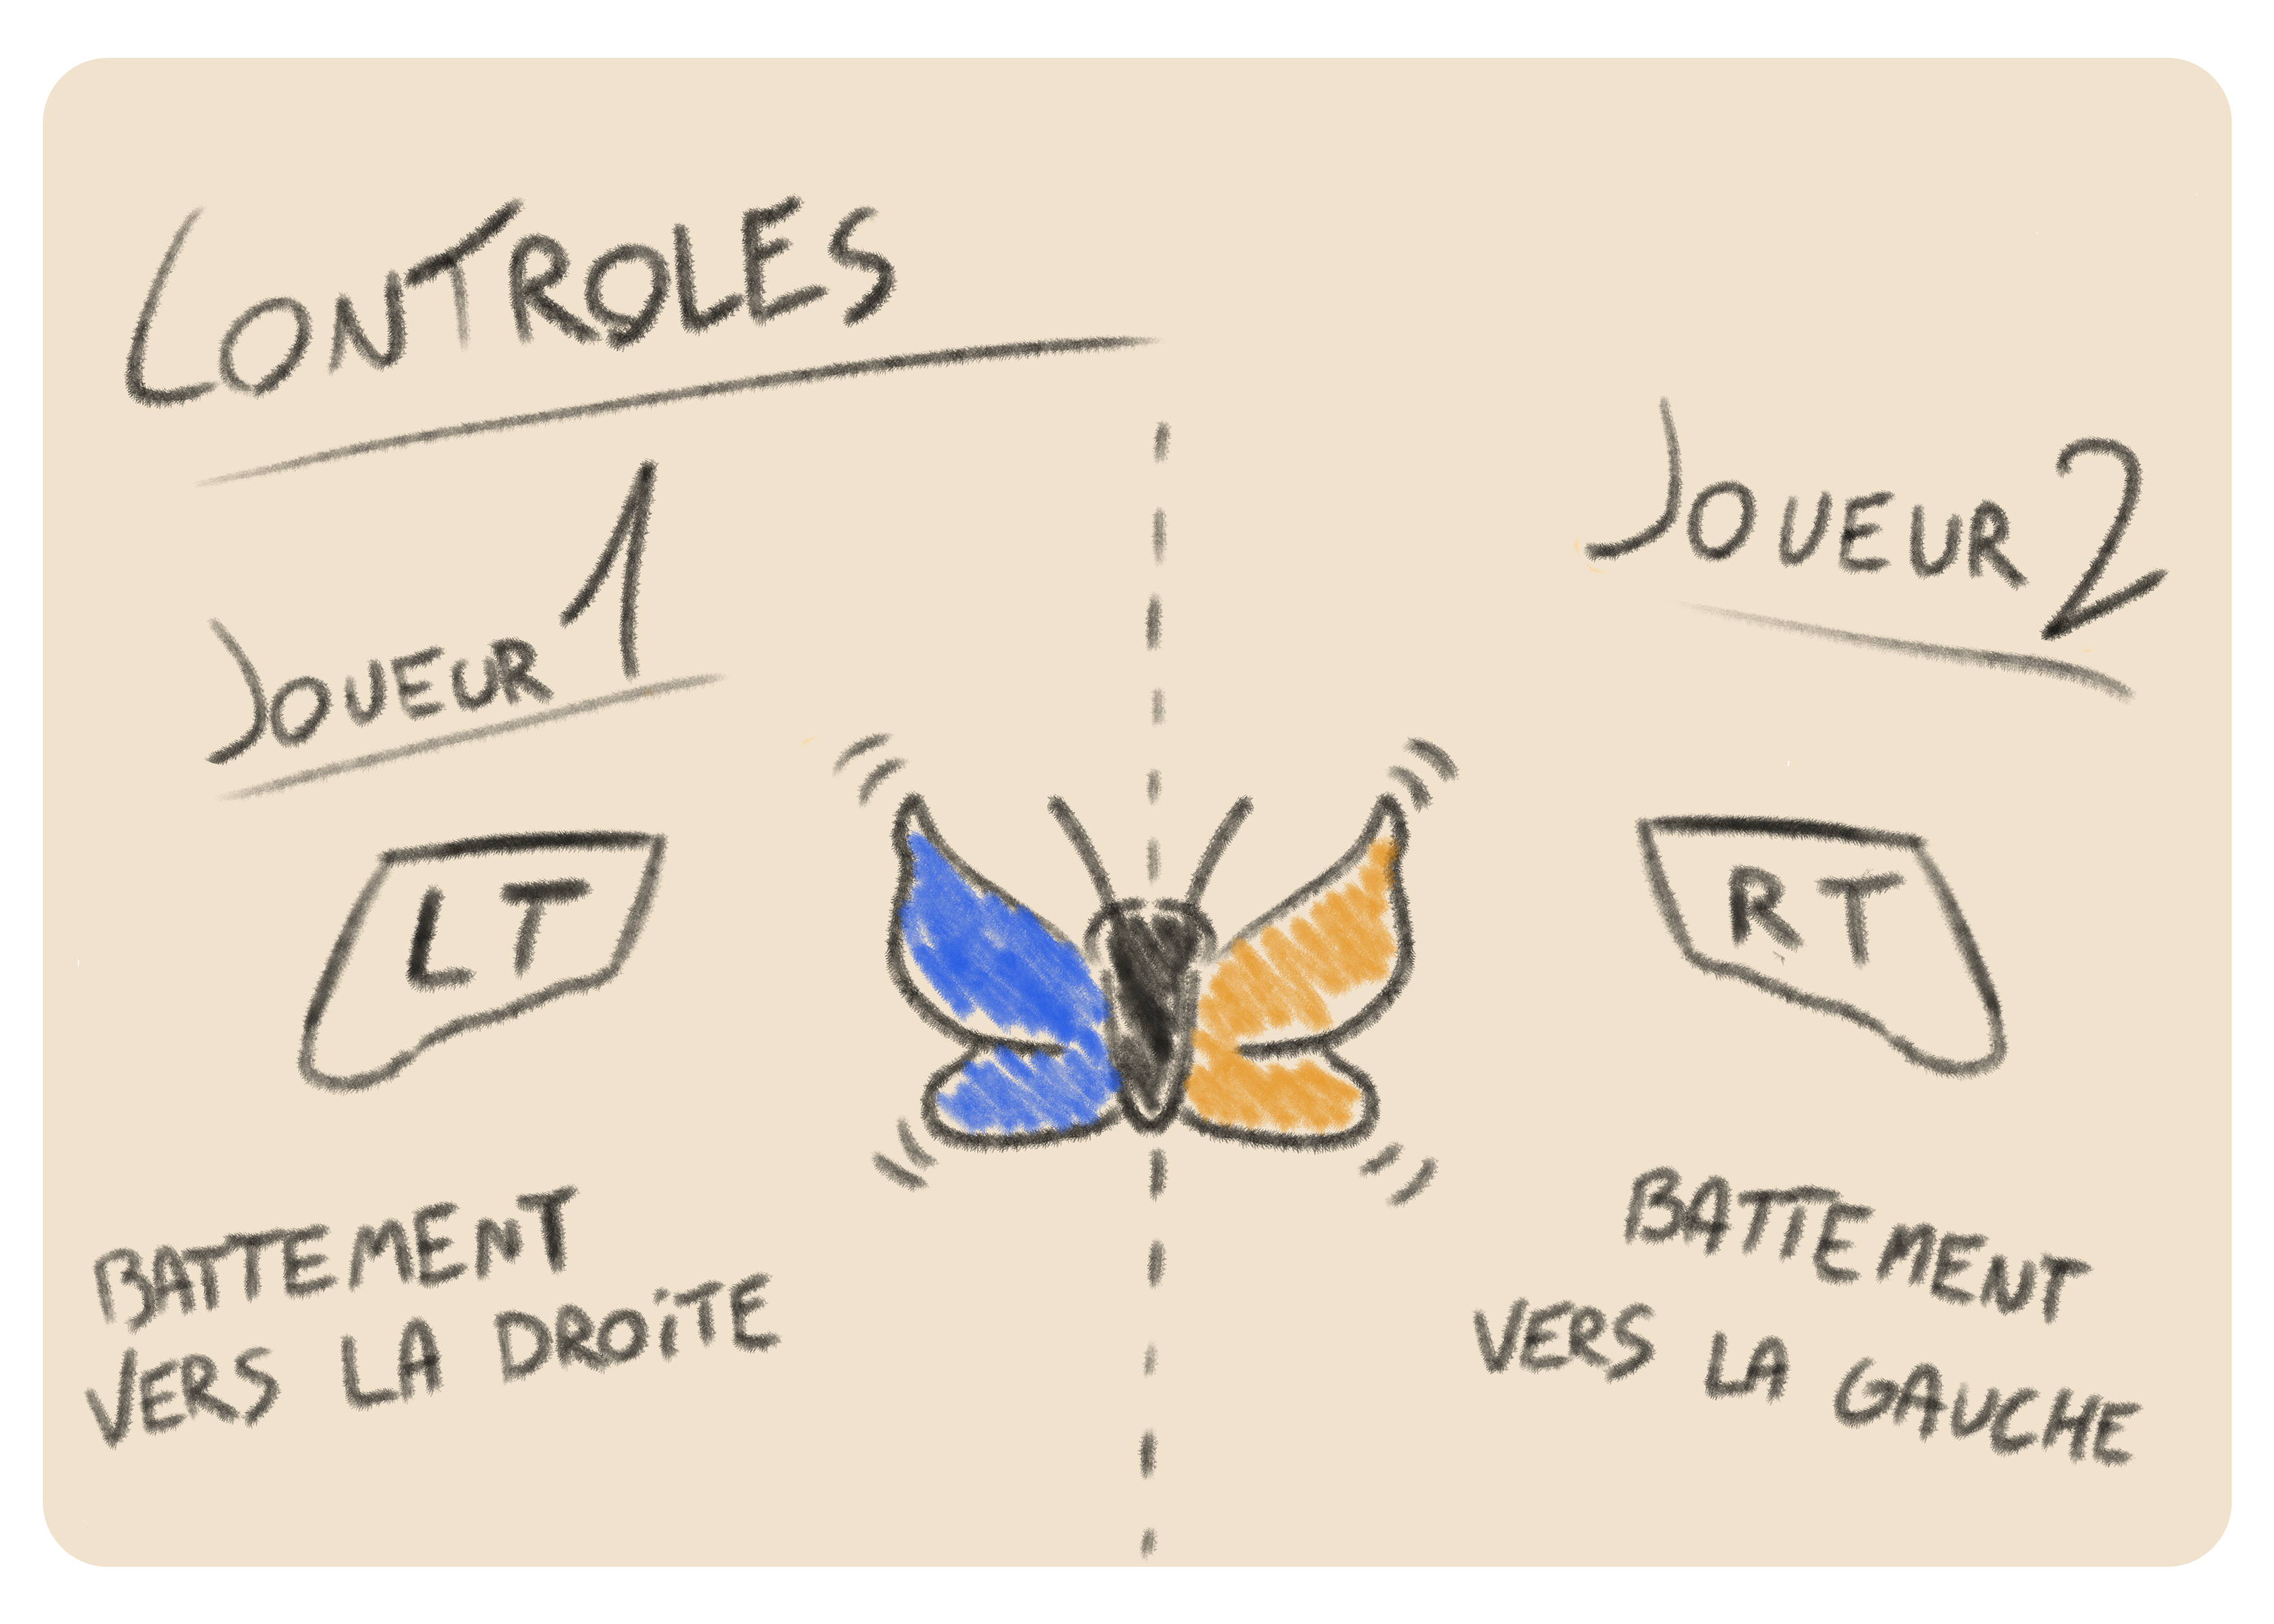 CONTROLES
JOUEUR 1
LT
BATTEMENT
VERS LA DROiTE
JOUEUR 2
RT
BATTEMENT
VERS LA GAUCHE